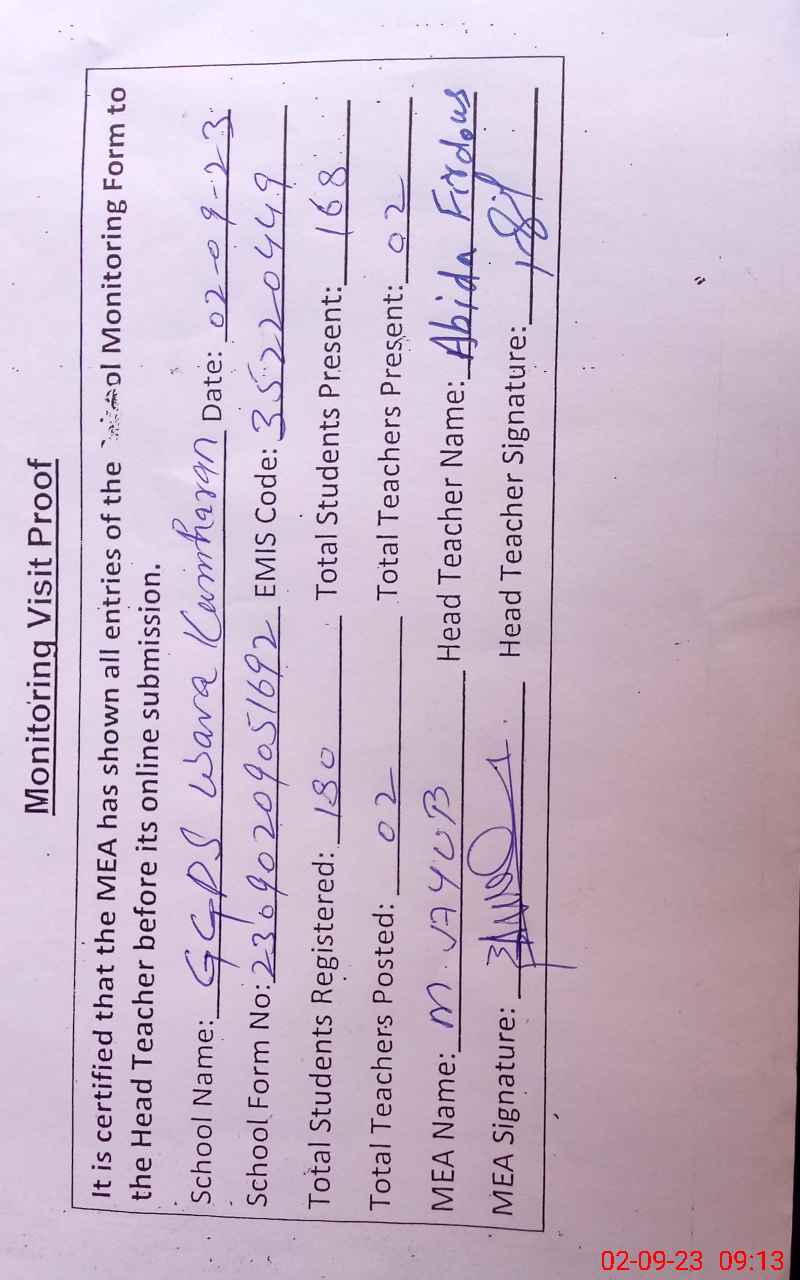 Monitoring Visit Proof
It is certified that the MEA has shown all entries of the School Monitoring Form to
the Head Teacher before its online submission.
School Name: GGPS Wara Kumharan Date: 02-09-23
School Form No: 23090209051692 EMIS Code: 35220449
Total Students Registered: 180 Total Students Present: 168
Total Teachers Posted: 02 Total Teachers Present: 02
MEA Name: M. Head Teacher Name: Abida Firdous
MEA Signature: Head Teacher Signature:
02-09-23 09:13